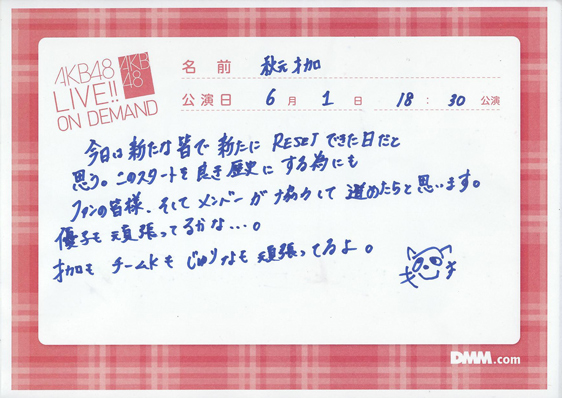 AKB48
LIVE!!
ON DEMAND
AKB
48
名前 秋元才加
公演日 6月1日 18:30公演
今日は新たな皆で新たにRESETできた日だと
思う。このスタートを良き歴史にする為にも
ファンの皆様、そしてメンバーが協力して進めたらと思います。
優子も頑張ってるかな…。
才加もチームKもじゅりなも頑張ってるよ。
DMM.com